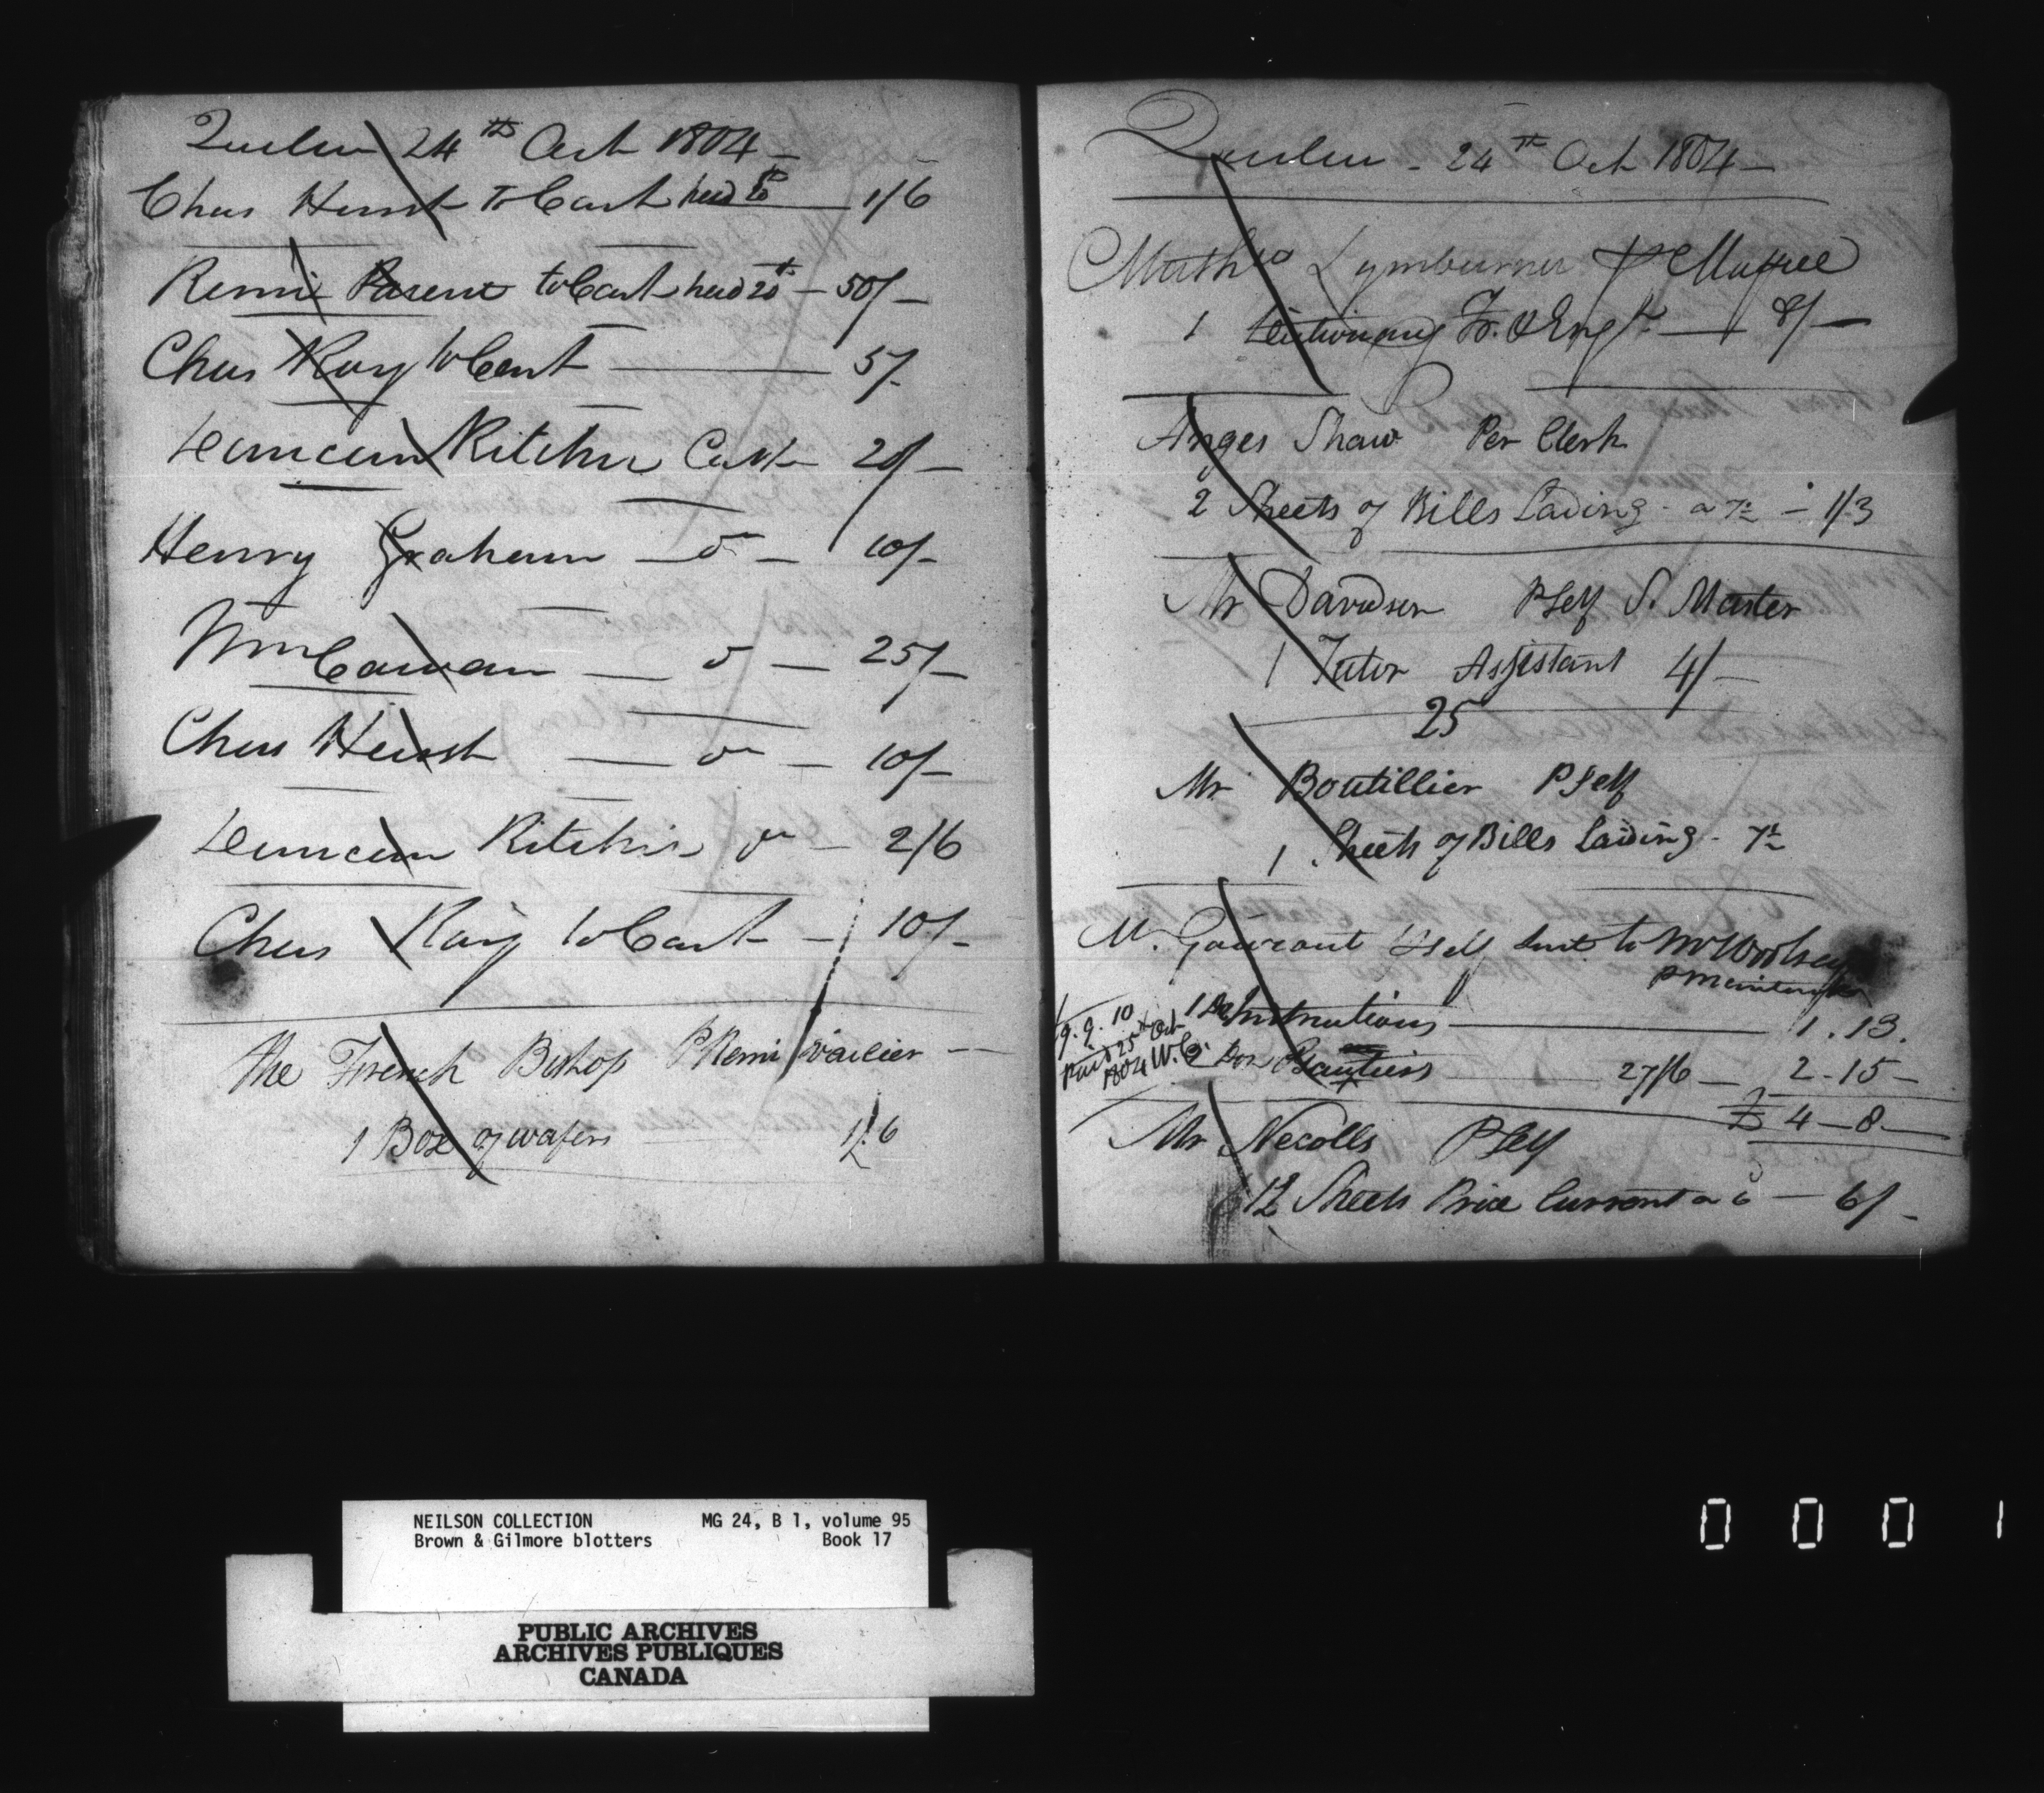 Quebec 24th Oct 1804 —
Chas Hurst To Cash 1/6
Remi Parent to Cash 50/-
Chas Kay to Cash 5/-
Duncan Ritchie Cash 20/-
Henry Graham — Do — 10/-
Wm Cowan — Do — 25/-
Chas Hurst — Do — 10/-
Duncan Ritchie Do — 2/6
Chas Kay to Cash — 10/-
The French Bishop P Remi
1 Box of wafers 1/6
Quebec - 24th Oct 1804 —
Mathw Lymburner P
1 Dictionary Fr. & Engl. — 8/-
Anges Shaw Per Clerk
2 Sheets of Bills Lading - a 7½ - 1/3
Mr Davidson PSelf S. Master
1 Tutor Assistant 4/-
25
Mr Boutillier PSelf
1 Sheets of Bills Laiding - 7½
Mr. PSelf Sent to Mr Woolsey
1 Do Instructions — 1.13.
g. g. 10
Paid 25th Oct
1804 W.C.
2 Doz Psautiers 27/6 — 2-15-
£ 4-8-
Mr Necolls PSelf
12 Sheets Price Current a 6 — 6/-
NEILSON COLLECTION MG 24, B 1, volume 95
Brown & Gilmore blotters Book 17
PUBLIC ARCHIVES
ARCHIVES PUBLIQUES
CANADA
0 0 0 1